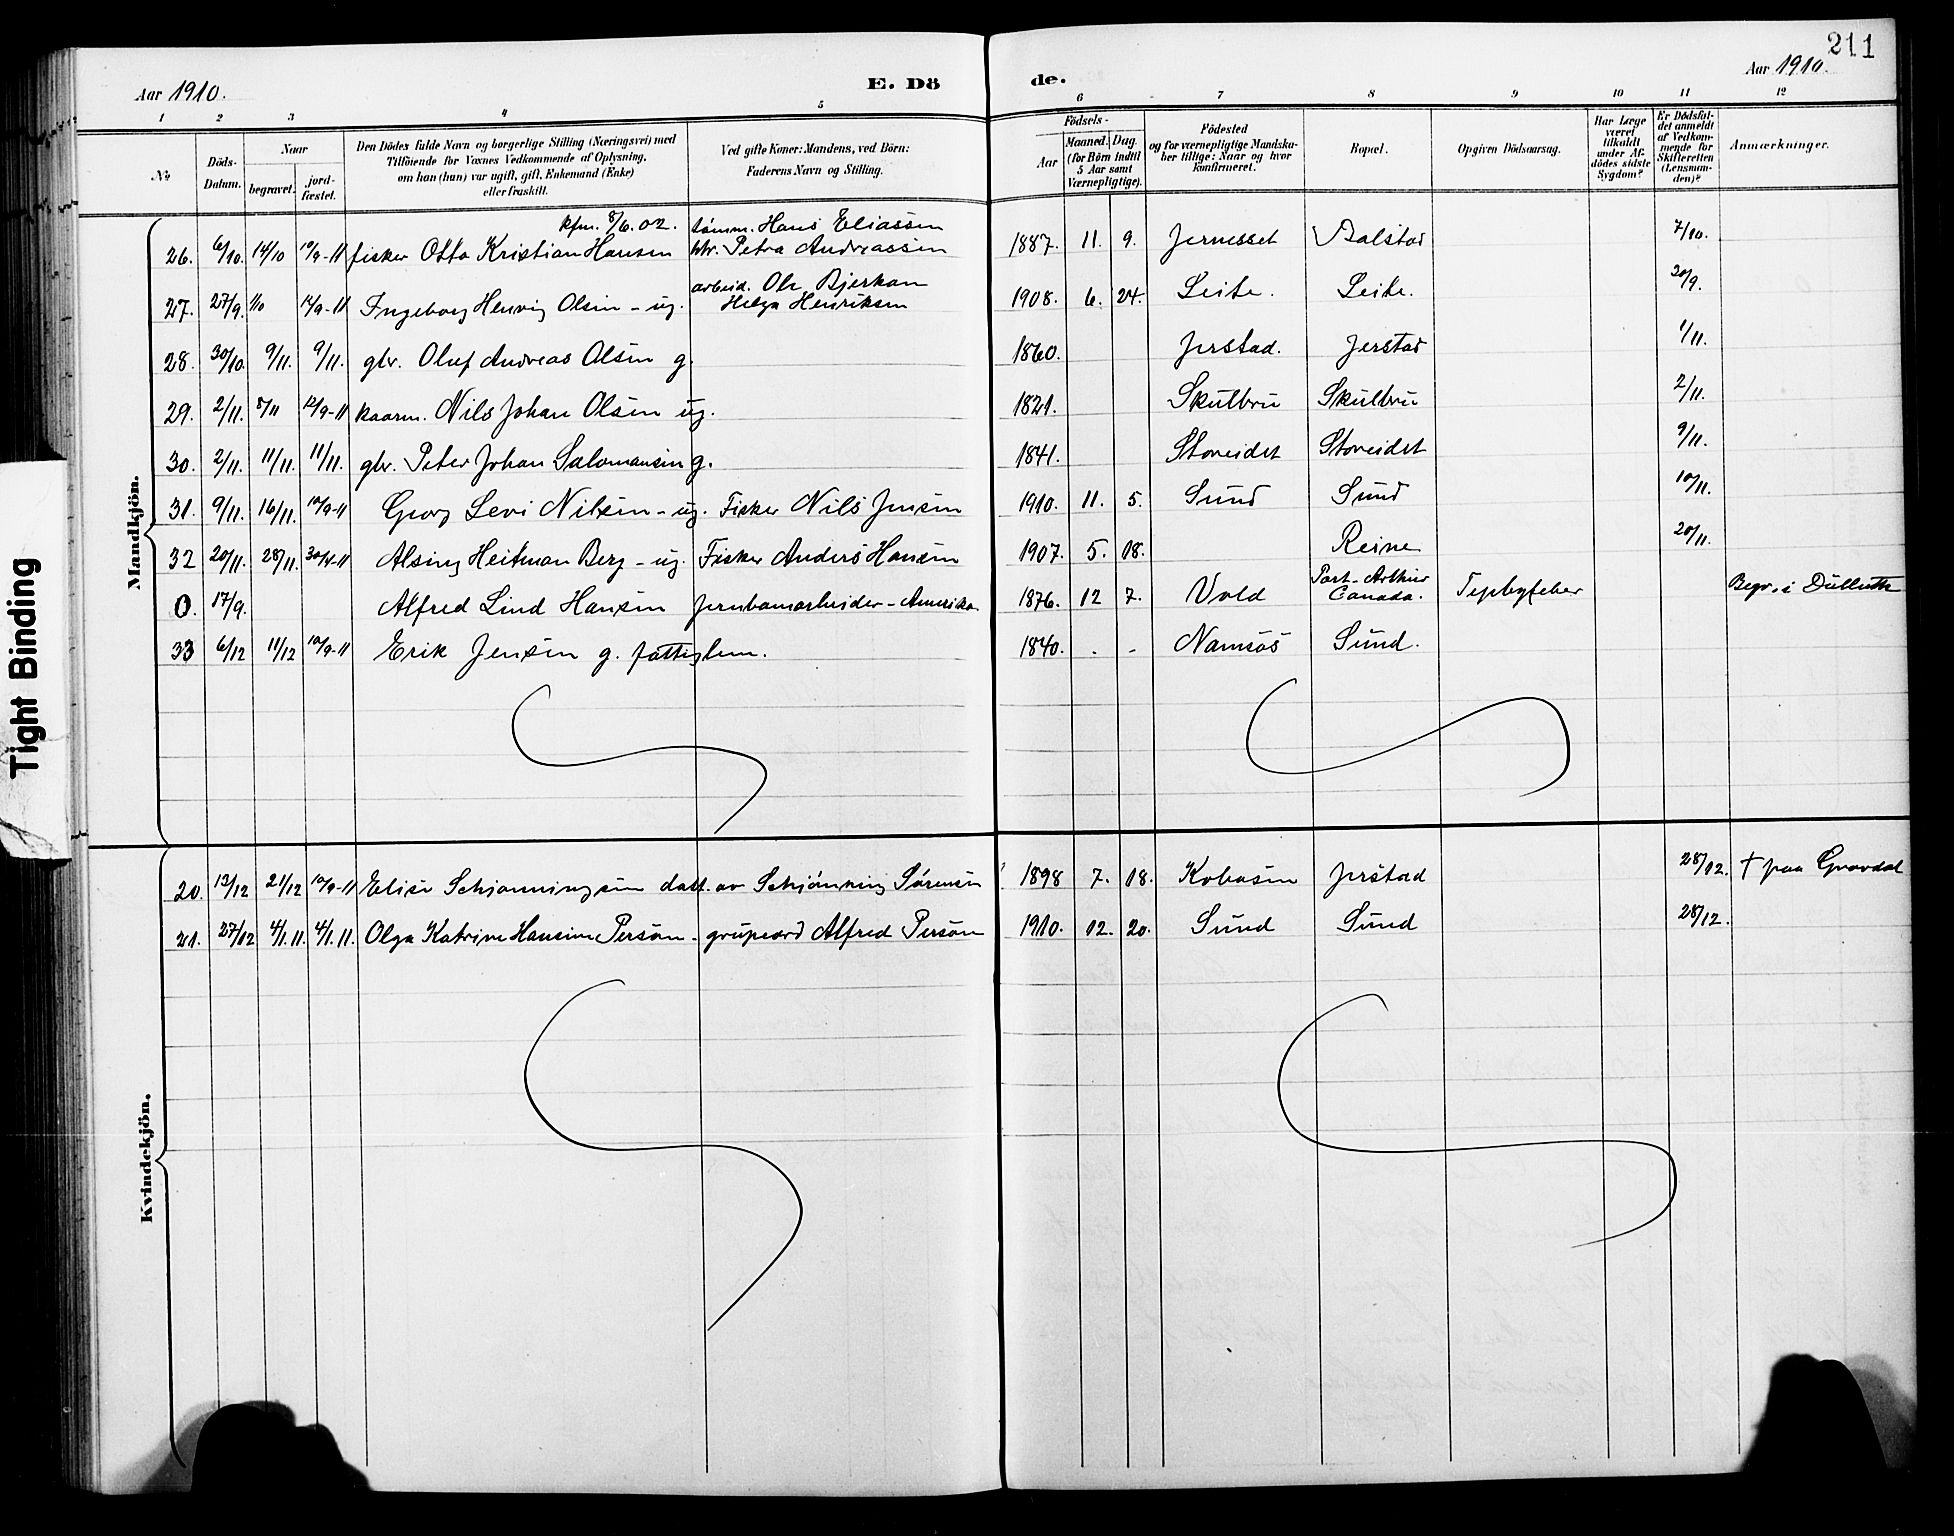 211
Aar 1910.
E. Dö
de.
Aar 1910.
1 2 3 4 5 6 7 8 9 10 11 12
№
Döds-Datum.
Naar
begravet.
jord-fæstet.
Den Dödes fulde Navn og borgerlige Stilling (Næringsvei) med
Tilföiende for Voxnes Vedkommende af Oplysning,
om han (hun) var ugift, gift, Enkemand (Enke)
eller fraskilt.
Ved gifte Koner: Mandens, ved Börn:
Faderens Navn og Stilling.
Födsels-
Aar
Maaned. Dag.
(for Börn indtil
5 Aar samt
Værnepligtige).
Födested
og for værnepligtige Mandska-
ber tillige: Naar og hvor
konfirmeret.
Bopæl.
Opgiven Dödsaarsag.
Har Læge
været
tilkaldt
under Af-
dödes sidste
Sygdom?
Er Dödsfal-
det anmeldt
af Vedkom-
mende for
Skifteretten
(Lensman-
den)?
Anmærkninger.
Mandkjön.
kfm. 8/6.02. tømm. Hans Eliassen
26. 6/10. 14/10 10/9-11 fisker Otto Kristian Hansen htr. Petra Andreassen 1887. 11. 9. Jernesset Balstad 7/10.
arbeid. Ole Bjerkan
27. 27/9. 1/10 14/9-11 Ingeborg Henvig Olsen - ug. Helga Henriksen 1908. 6. 24. Leite. Leite. 20/9.
28. 30/10. 9/11. 9/11. gbr. Oluf Andreas Olsen g. 1860. Jerstad. Jerstad 1/11.
29. 2/11. 8/11 12/9-11 kaarm. Nils Johan Olsen ug. 1821. Skulbru Skulbru 2/11.
30. 2/11. 11/11. 11/11. gbr. Peter Johan Salomonsen g. 1841. Storeidet Storeidet 9/11.
31. 9/11. 16/11. 10/9-11 Georg Levi Nilsen - ug. Fisker Nils Jensen 1910. 11. 5. Sund Sund 10/11.
32 20/11. 28/11. 30/4-11 Alsing Heitman Berg - ug. Fisker Anders Hansen 1907. 5. 18. Reine 20/11.
0. 17/9. Alfred Lind Hansen jernbanearbeider - Amerika 1876. 12 7. Vold Port-Arthur Canada. Begr. i Dulluth
33 6/12 11/12 10/9-11 Erik Jensen g. fattiglem. 1840. . - Namsos Sund.
Kvindekjön.
20. 13/12 21/12 10/9-11 Elise Schjønningsen datt. av Schjønning Sørensen 1898 7. 18. Kobosen Jerstad 28/12. † paa Gravdal
21. 27/12 4/1.11. 4/1.11. Olga Katrine Hansine Persøn - grupearb Alfred Persøn 1910. 12. 20. Sund Sund 28/12.
Tight Binding